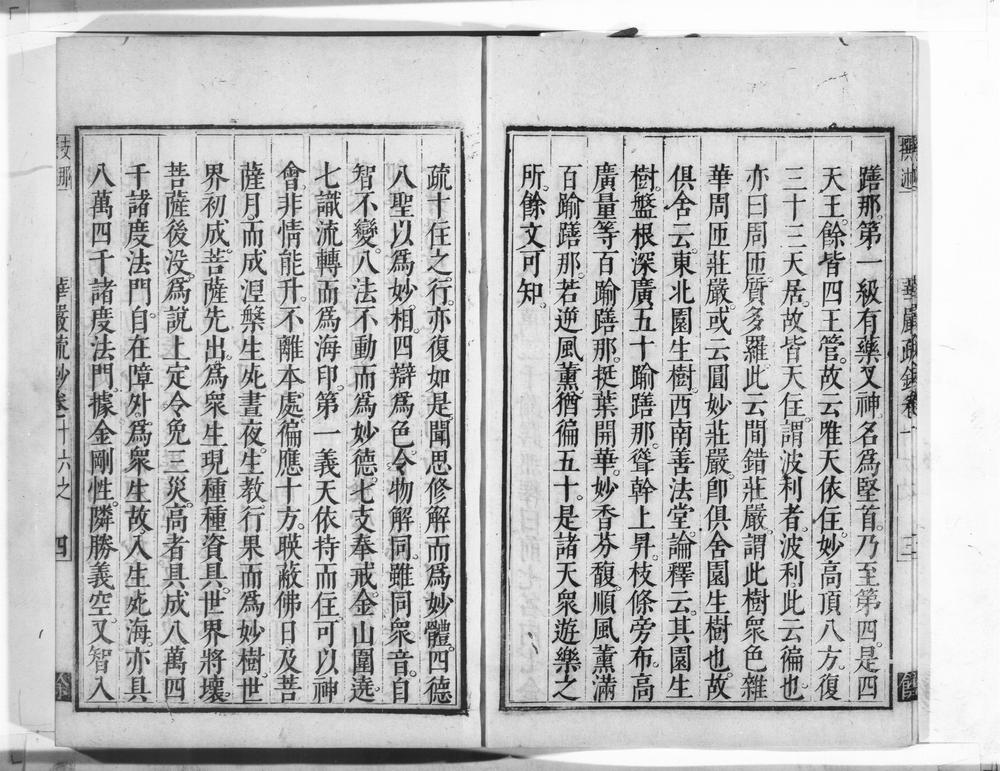 踰那。第一級有藥叉神名爲堅首。乃至第四。是四
天王。餘皆四王管。故云唯天依住。妙高頂八方。復
三十三天居。故皆天住。謂波利者。波利此云徧也
亦曰周匝。質多羅。此云間錯莊嚴。謂此樹衆色雜
華周匝莊嚴。或云圓妙莊嚴。卽俱舍園生樹也。故
俱舍云。東北園生樹。西南善法堂。論釋云。其園生
樹。盤根深廣五十踰繕那。聳幹上昇。枝條旁布。高
廣量等百踰繕那。挺葉開華。妙香芬馥。順風薰滿
百踰繕那。若逆風薰猶徧五十。是諸天衆遊樂之
所。餘文可知。
疏十住之行。亦復如是。聞思修解而爲妙體。四德
八聖以爲妙相。四辯爲色。令物解同。雖同衆音。自
智不變。八法不動而爲妙德。七支奉戒。金山圍遶。
七識流轉而爲海印。第一義天依持而住。可以神
會。非情能升。不離本處。徧應十方。暎蔽佛日及菩
薩月。而成涅槃生死晝夜。生教行果而爲妙樹。世
界初成。菩薩先出。爲衆生現種種資具。世界將壞。
菩薩後没。爲說上定令免三災。高者具成八萬四
千諸度法門。自在障外。爲衆生故。入生死海。亦具
八萬四千諸度法門。據金剛性。隣勝義空。又智入
華嚴疏鈔卷十六之 四